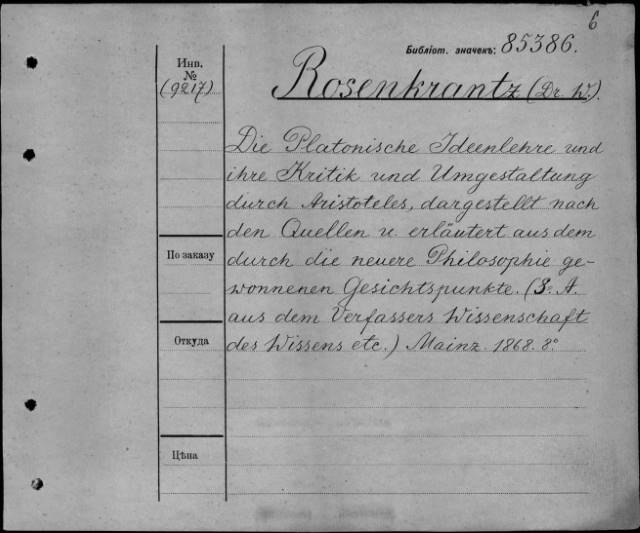 6
Библіот. значекъ: 85386.
Инв.
№
(9217)
Rosenkrantz (Dr. W).
Die Platonische Ideenlehre und
ihre Kritik und Umgestaltung
durch Aristoteles, dargestellt nach
den Quellen u. erläutert aus dem
По заказу
durch die neuere Philosophie ge-
wonnenen Gesichtspunkte. (S. A.
aus dem Verfassers Wissenschaft
Откуда
des Wissens etc.) Mainz. 1868. 8°
Цѣна